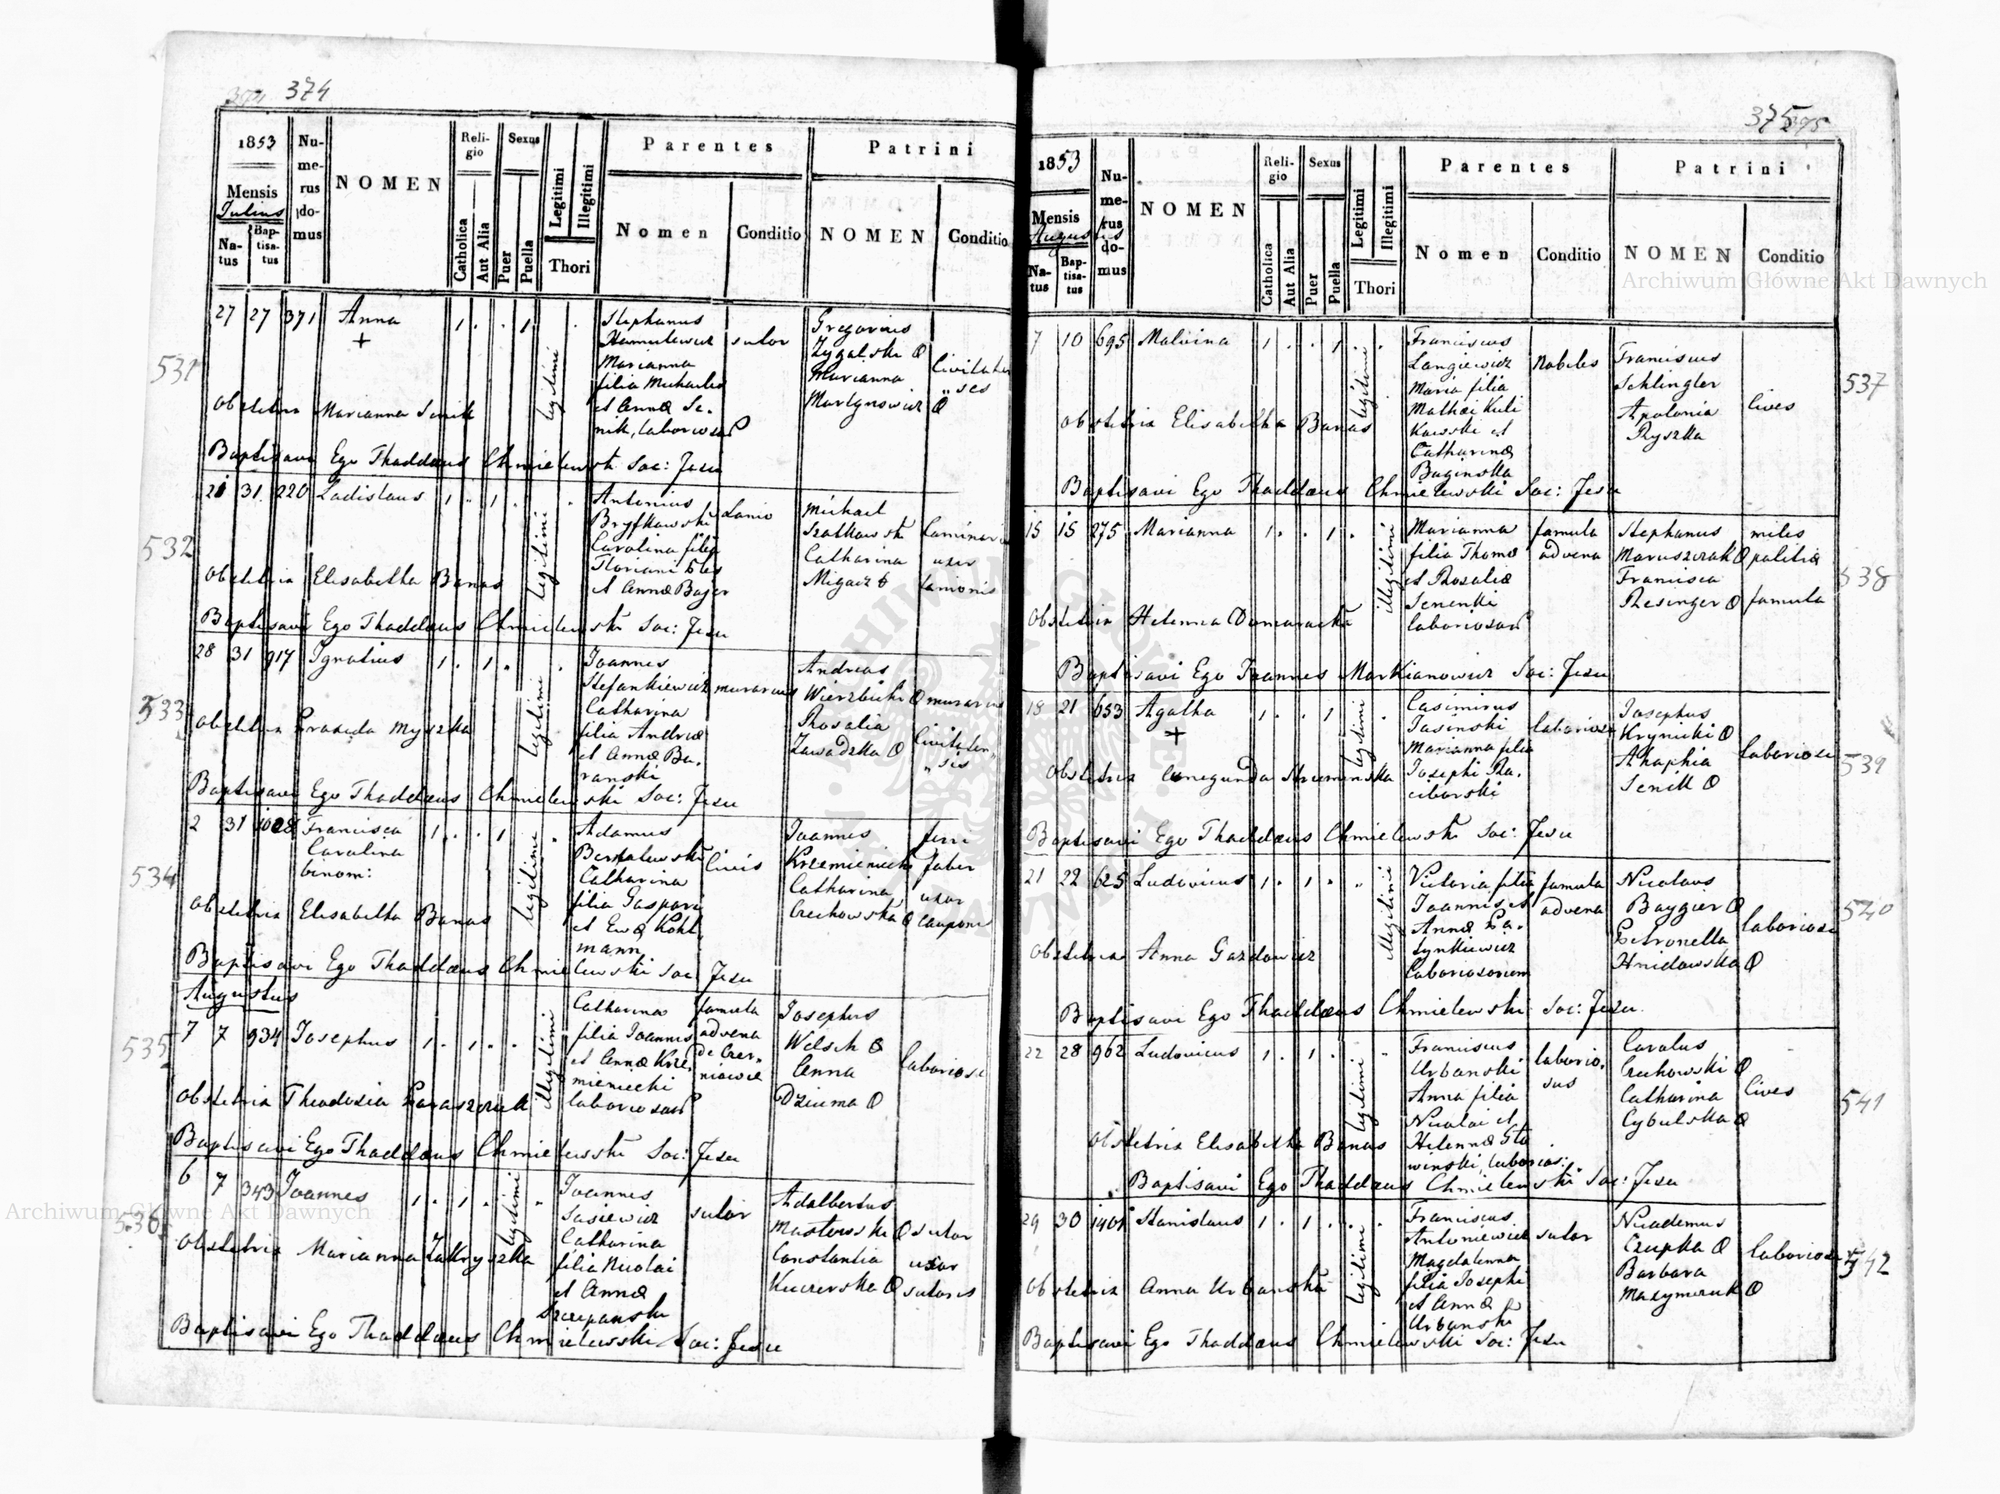 374
1853
Mensis
Julius
Natus
Baptisatus
Numerus domus
NOMEN
Religio
Catholica
Aut Alia
Sexus
Puer
Puella
Legitimi
Illegitimi
Thori
Parentes
Nomen
Conditio
Patrini
NOMEN
Conditio
531
27 27 371 Anna 1 . . 1 legitimi . Stephanus sutor Gregorius
Marianna
filia Michaelis
et Annæ Se-
nik, laborios
Zygalski
Marianna
Martynowicz
Civitaten
ses
Obstetrix Marianna Senik
Baptisavi Ego Thaddæus Chmielewski Soc: Jesu
532
31 220 Ladislaus 1 . 1 . legitimi . Antonius Lanio Michael
Carolina filia
Floriani
et Annæ Bajer
Szatkowski
Catharina
uxor
lanionis
Obstetrix Elisabetha Banas
Baptisavi Ego Thaddæus Chmielewski Soc: Jesu
533
28 31 917 Ignatius 1 . 1 . legitimi . Joannes Andreas
Stefankiewicz murarius Wierzbicki murarius
Catharina Rosalia
filia Andreæ Zawadzka Civitaten
et Annæ Ba- ses
ranski
Obstetrix Praxeda Myszka
Baptisavi Ego Thaddæus Chmielewski Soc: Jesu
534
2 31 1028 Francisca 1 . . 1 legitimi Adamus Civis Joannes ferri
Carolina
binom:
Catharina
filia Gaspari
et Evæ Kohl
mann
Krzemieniecki faber
Catharina uxor
Czechowska cauponi
Obstetrix Elisabetha Banas
Baptisavi Ego Thaddæus Chmielewski Soc: Jesu
Augustus
535
7 7 934 Josephus 1 . 1 . . illegitimi Catharina famula Josephus
filia Joannis advena Welsch
et Annæ Krze- de Czer- Anna laboriosi
mieniecki niowce Dziuma
laborios
Obstetrix Theodosia Paraszczuk
Baptisavi Ego Thaddæus Chmielewski Soc: Jesu
536
6 7 343 Joannes 1 . 1 . legitimi Joannes sutor Adalbertus
Susiewicz Masłowski sutor
Catharina Constantia uxor
filia Nicolai Kuczewska sutoris
et Annæ
Szczepanski
Obstetrix Marianna Zakryszka
Baptisavi Ego Thaddæus Chmielewski Soc: Jesu
375
1853
Mensis
Augustus
Natus
Baptisatus
Numerus domus
NOMEN
Religio
Catholica
Aut Alia
Sexus
Puer
Puella
Legitimi
Illegitimi
Thori
Parentes
Nomen
Conditio
Patrini
NOMEN
Conditio
537
7 10 695 Malvina 1 . . 1 legitimi . Franciscus Nobiles Franciscus
Langiewicz Schlingler
Maria filia Apolonia cives
Mathæi Kuli Ryszka
kowski et
Catharinæ
Baginska
Obstetrix Elisabetha Banas
Baptisavi Ego Thaddæus Chmielewski Soc: Jesu
538
15 15 275 Marianna 1 . . 1 . illegitimi Marianna famula Stephanus miles
filia Thomæ advena Maruszczak politiæ
et Rosaliæ Francisca
Senenki Resinger famula
laborios
Obstetrix Helenna Domaracka
Baptisavi Ego Joannes Markianowicz Soc: Jesu
539
18 21 653 Agatha 1 . . 1 legitimi . Casimirus laboriosi Josephus
Jasinski Krynicki
Marianna filia Ahaphia laboriosi
Josephi Ra- Senik
ciborski
Obstetrix Cunegunda Strumenska
Baptisavi Ego Thaddæus Chmielewski Soc: Jesu
540
21 22 625 Ludovicus 1 . 1 . illegitimi Victoria filia famula Nicolaus
Joannis et advena Baygier
Annæ La- Petronella laboriosi
synkiewicz Hnidowska
laboriosorum
Obstetrix Anna Gazdowicz
Baptisavi Ego Thaddæus Chmielewski Soc: Jesu
541
22 28 962 Ludovicus 1 . 1 . legitimi Franciscus laborio- Carolus
Urbanski sus Czechowski
Anna filia Catharina cives
Nicolai et Cybulska
Helennæ Sta
winski, laborios:
Obstetrix Elisabetha Banas
Baptisavi Ego Thaddæus Chmielewski Soc: Jesu
542
29 30 1401 Stanislaus 1 . 1 . . legitimi Franciscus sutor Nicodemus
Antoniewicz Czupka
Magdalenna Barbara laboriosi
filia Josephi Maxymczuk
et Annæ
Urbanski
Obstetrix Anna Urbanska
Baptisavi Ego Thaddæus Chmielewski Soc: Jesu
Archiwum Główne Akt Dawnych
Archiwum Główne Akt Dawnych